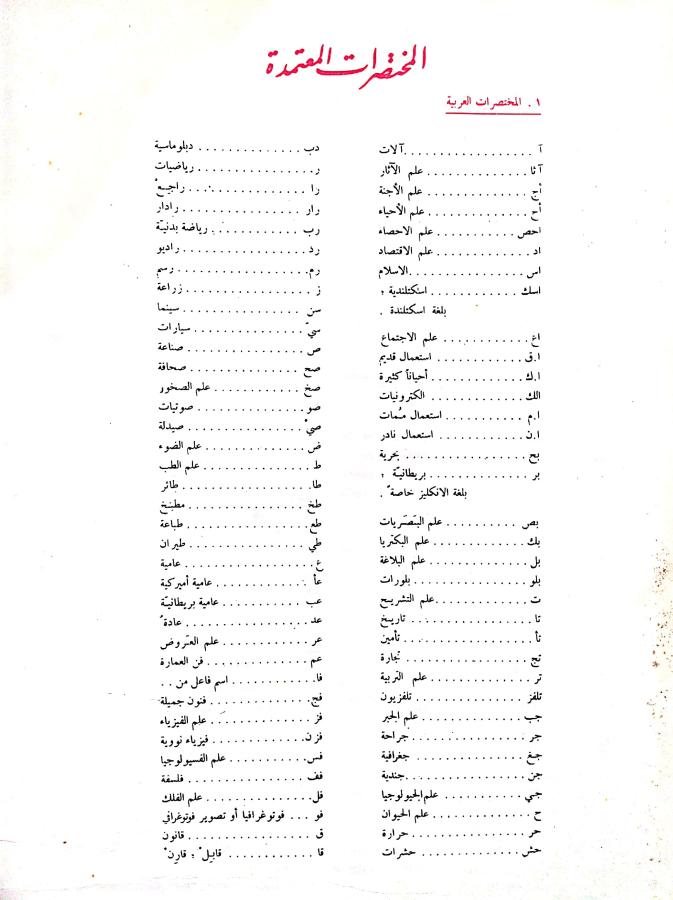 المختصرات المعتمدة
١ . المختصرات العربية
آ . . . . . . . . . . . . . . . . . . آلات
آثا . . . . . . . . . . . . . . علم الآثار
أج . . . . . . . . . . . . . . علم الأجنة
أح . . . . . . . . . . . . . . علم الأحياء
احص . . . . . . . . . . . علم الاحصاء
اد . . . . . . . . . . . . . علم الاقتصاد
اس . . . . . . . . . . . . . . . . الاسلام
اسك . . . . . . . . . . . . اسكتلندية ؛
بلغة اسكتلندة .
اع . . . . . . . . . . . . علم الاجتماع
ا.ق . . . . . . . . . . . استعمال قديم
ا.ك . . . . . . . . . . . . أحياناً كثيرة
الك . . . . . . . . . . . . الكترونيات
ا.م . . . . . . . . . . . استعمال مُمات
ا.ن . . . . . . . . . . . استعمال نادر
بح . . . . . . . . . . . . . . . . . بحرية
بر . . . . . . . . . . . . . . بريطانيّة ؛
بلغة الانكليز خاصةً .
بص . . . . . . . . . . علم البَصَريات
بك . . . . . . . . . . . . . علم البكتريا
بل . . . . . . . . . . . . . . علم البلاغة
بلو . . . . . . . . . . . . . . . . بلورات
ت . . . . . . . . . . . . . علم التشريح
تا . . . . . . . . . . . . . . . . . تاريخ
تأ . . . . . . . . . . . . . . . . . . تأمين
تج . . . . . . . . . . . . . . . . . تجارة
تر . . . . . . . . . . . . . . علم التربية
تلفز . . . . . . . . . . . . . . . تلفزيون
جب . . . . . . . . . . . . . . علم الجبر
جر . . . . . . . . . . . . . . . . . جراحة
جغ . . . . . . . . . . . . . . . . جغرافية
جن . . . . . . . . . . . . . . . . . جندية
جي . . . . . . . . . . . علم الجيولوجيا
ح . . . . . . . . . . . . . . علم الحيوان
حر . . . . . . . . . . . . . . . . . حرارة
حش . . . . . . . . . . . . . . حشرات
دب . . . . . . . . . . . . . . دبلوماسية
ر . . . . . . . . . . . . . . . . . رياضيات
را . . . . . . . . . . . . . . . . . راجِعْ
رار . . . . . . . . . . . . . . . . . رادار
رب . . . . . . . . . . . . رياضة بدنيّة
رد . . . . . . . . . . . . . . . . . راديو
رم . . . . . . . . . . . . . . . . . . رسم
ز . . . . . . . . . . . . . . . . . . زراعة
سن . . . . . . . . . . . . . . . . سينما
سيّ . . . . . . . . . . . . . . . سيارات
ص . . . . . . . . . . . . . . . . صناعة
صح . . . . . . . . . . . . . . . صحافة
صخ . . . . . . . . . . . علم الصخور
صو . . . . . . . . . . . . . . . صوتيات
صيْ . . . . . . . . . . . . . . . صيدلة
ض . . . . . . . . . . . . . علم الضوء
ط . . . . . . . . . . . . . . . علم الطب
طا . . . . . . . . . . . . . . . . . . طائر
طخ . . . . . . . . . . . . . . . . مطبَخ
طع . . . . . . . . . . . . . . . . طباعة
طي . . . . . . . . . . . . . . . . طيران
ع . . . . . . . . . . . . . . . . . . عامية
عأ . . . . . . . . . . . . عامية أميركية
عب . . . . . . . . . . . عامية بريطانيّة
عد . . . . . . . . . . . . . . . . . عادةً
عر . . . . . . . . . . . . علم العَروض
عم . . . . . . . . . . . . . فن العمارة
فا . . . . . . . . . . . اسم فاعل من . .
فج . . . . . . . . . . . . . فنون جميلة
فز . . . . . . . . . . . . . علم الفيزياء
فزن . . . . . . . . . . . . فيزياء نووية
فس . . . . . . . . . . علم الفسيولوجيا
فف . . . . . . . . . . . . . . . . فلسفة
فل . . . . . . . . . . . . . . علم الفلك
فو . . . فوتوغرافيا أو تصوير فوتوغرافي
ق . . . . . . . . . . . . . . . . . قانون
قا . . . . . . . . . . . . قابِلْ ؛ قارِنْ